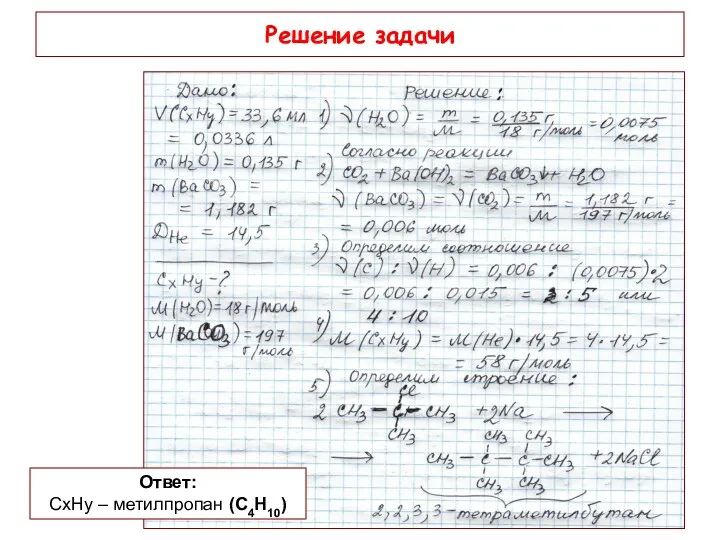 Решение задачи
Дано:
V(CxHy) = 33,6 мл
= 0,0336 л
m(H2O) = 0,135 г
m(BaCO3) =
= 1,182 г
DHe = 14,5
CxHy - ?
M(H2O) = 18 г/моль
M(BaCO3) = 197
г/моль
Решение:
1) ν(H2O) = m/M = 0,135 г/18 г/моль = 0,0075
моль
Согласно реакции
2) CO2 + Ba(OH)2 = BaCO3↓ + H2O
ν(BaCO3) = ν(CO2) = m/M = 1,182 г/197 г/моль =
= 0,006 моль
3) Определим соотношение
ν(C) : ν(H) = 0,006 : (0,0075)·2
= 0,006 : 0,015 = 2 : 5 или
4 : 10
4) M(CxHy) = M(He)·14,5 = 4·14,5 =
= 58 г/моль
5) Определим строение:
Cl
2 CH3 – C – CH3 + 2Na →
CH3
CH3 CH3
→ CH3 – C – C – CH3 + 2NaCl
CH3 CH3
2,2,3,3-тетраметилбутан
Ответ:
CxHy – метилпропан (C4H10)